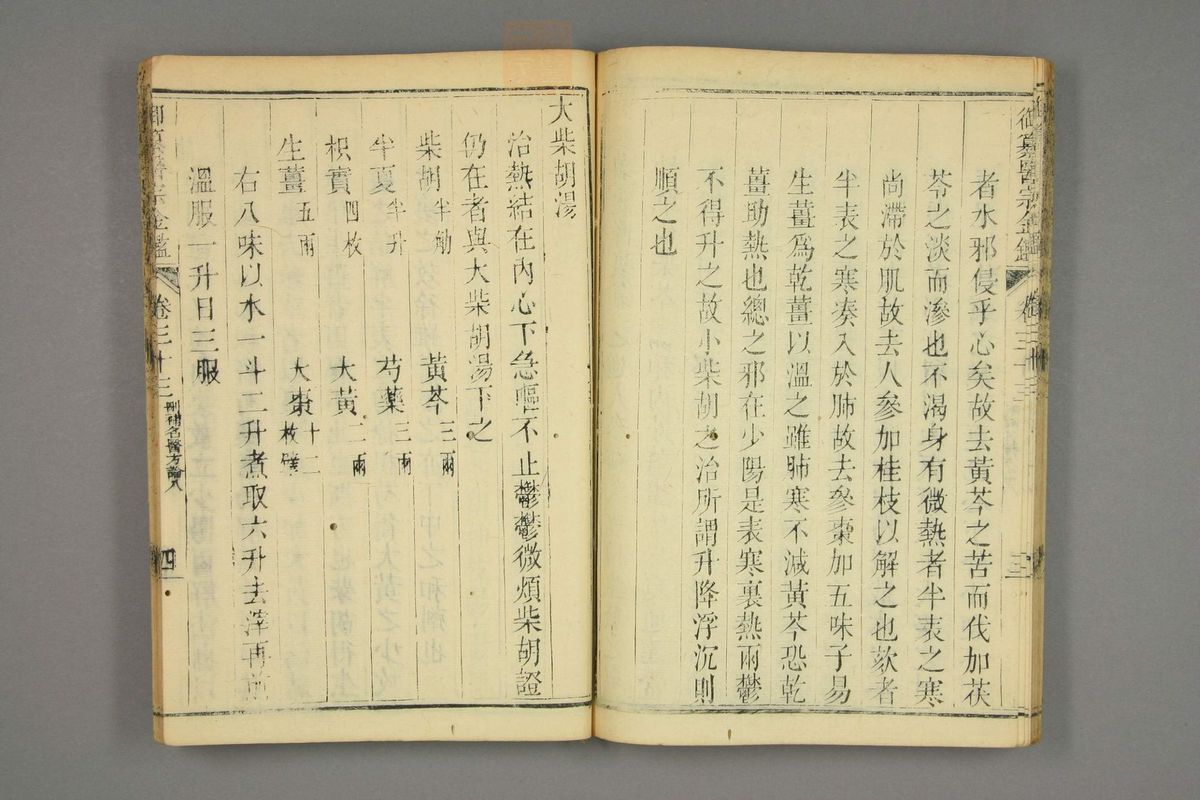 者水邪侵乎心矣故去黃芩之苦而伐加茯
苓之淡而滲也不渴身有微熱者半表之寒
尚滯於肌故去人參加桂枝以解之也欬者
半表之寒湊入於肺故去參棗加五味子易
生薑爲乾薑以溫之雖肺寒不減黃芩恐乾
薑助熱也總之邪在少陽是表寒裏熱兩鬱
不得升之故小柴胡之治所謂升降浮沉則
順之也
御纂醫宗金鑑
卷三十三
三
大柴胡湯
治熱結在內心下急嘔不止鬱鬱微煩柴胡證
仍在者與大柴胡湯下之
柴胡半觔 黃芩三兩
半夏半升 芍藥三兩
枳實四枚 大黃二兩
生薑五兩 大棗十二枚擘
右八味以水一斗二升煮取六升去滓再煎
溫服一升日三服
御纂醫宗金鑑
卷三十三
刪補名醫方論八
四